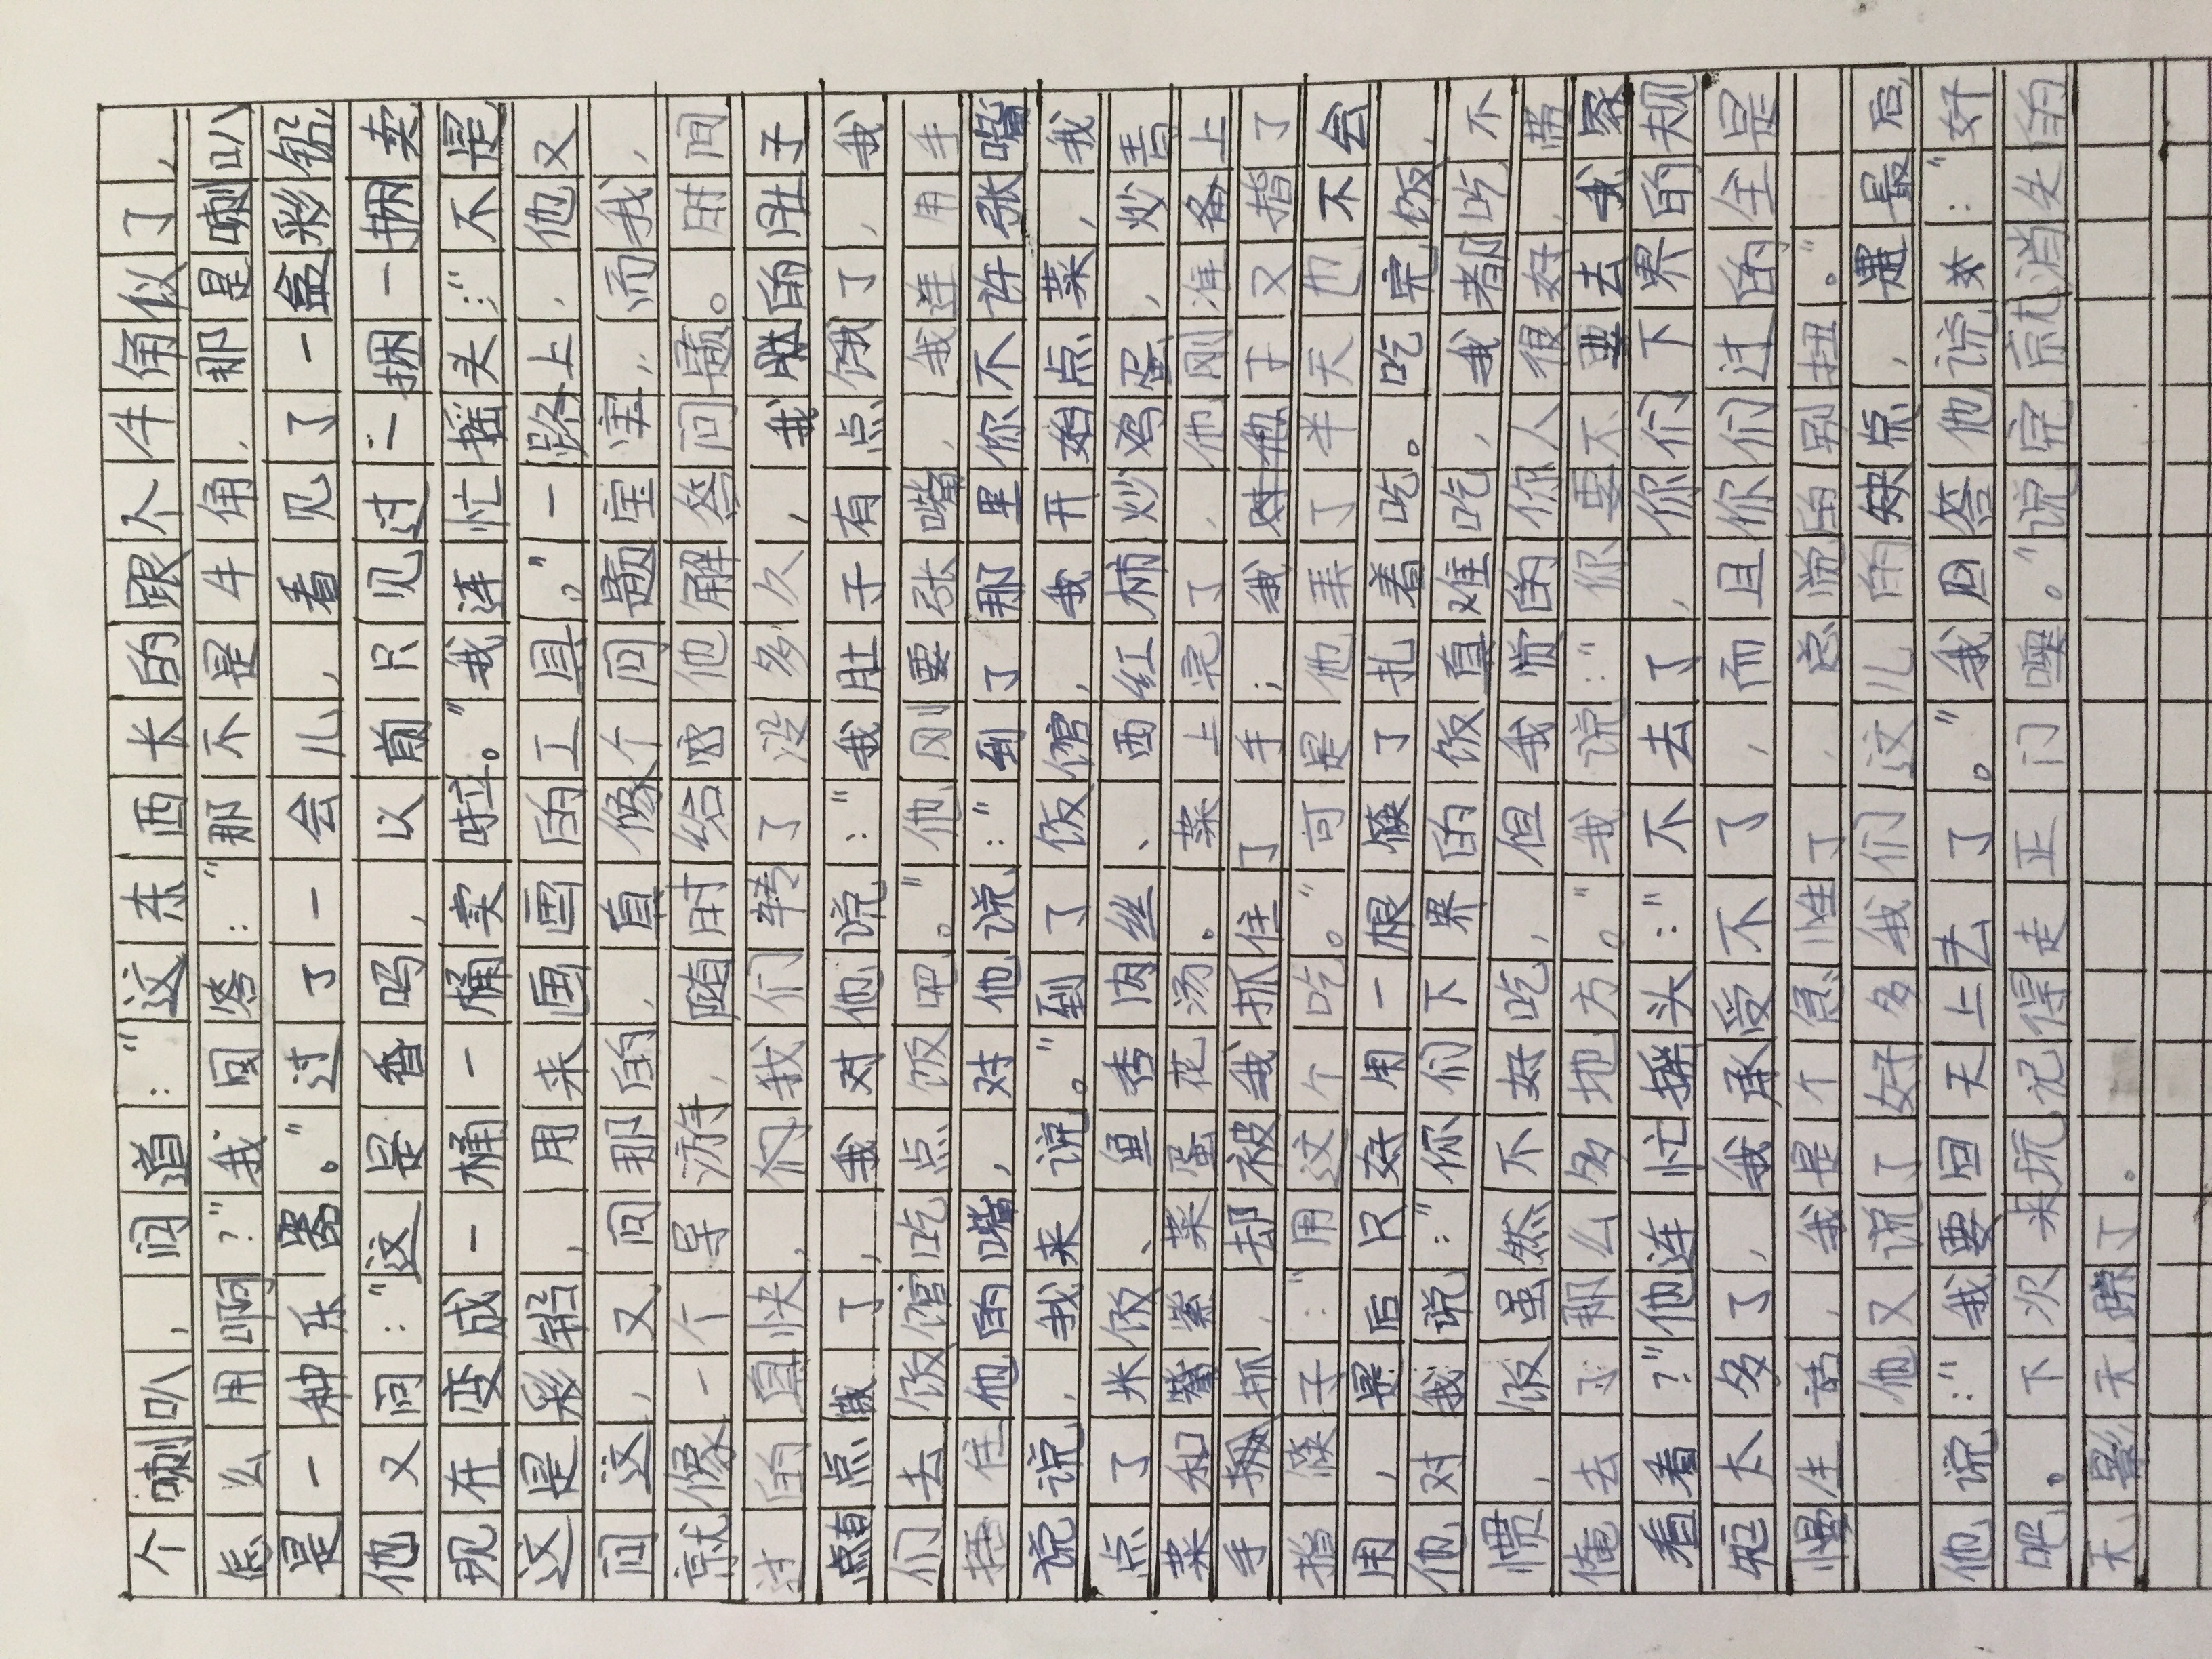 个喇叭，问道：“这东西长的跟个牛角似了，
怎么用啊？”我回答：“那不是牛角，那是喇叭
是一种乐器。”过了一会儿，看见了一盒彩铅
他又问：“这是香吗，以前只见过一捆一捆卖
现在变成一桶一桶卖啦。”我连忙摇头：“不是
这是彩铅，用来画画的工具。”一路上，他又
问这，又问那的，直像个问题宝宝，而我，
就像一个导游，随时给他解答问题。时间
过的真快，我们转了没多久，我的肚子
有点饿了，我对他说：“我肚子有点饿了，我
们去饭馆吃点饭吧。”他刚要张嘴，我连用手
捂住他的嘴，对他说：“到了那里你不许张嘴
说，我来说。”到了饭馆，我开始点菜，我
点了米饭、鱼香肉丝、西红柿炒鸡蛋，炒青
菜和紫菜蛋花汤。菜上完了，他刚准备上
手抓，却被我抓住了手；我对他又指了
指筷子：“用这个吃。”可是他弄了半天也不会
用，最后只好用一根筷子扎着吃。吃完饭，
他对我说：“你们下界的饭直难吃，我都吃不
惯，饭虽然不好吃，但我觉的你人很好，带
俺去了那么多地方。”我说：“你要不要去我家
看看？”他连忙摇头：“不去了，你们下界的规
矩太多了，我承受不了，而且你们过的全是
慢生活，我是个急性了，总觉的别扭。”
他又说了好多我们这儿的缺点，最后
他说：“我要回天上去了。”我回答他说：“好
吧。下次来玩记得走正门噢。”说完就消失的
无影无踪了。